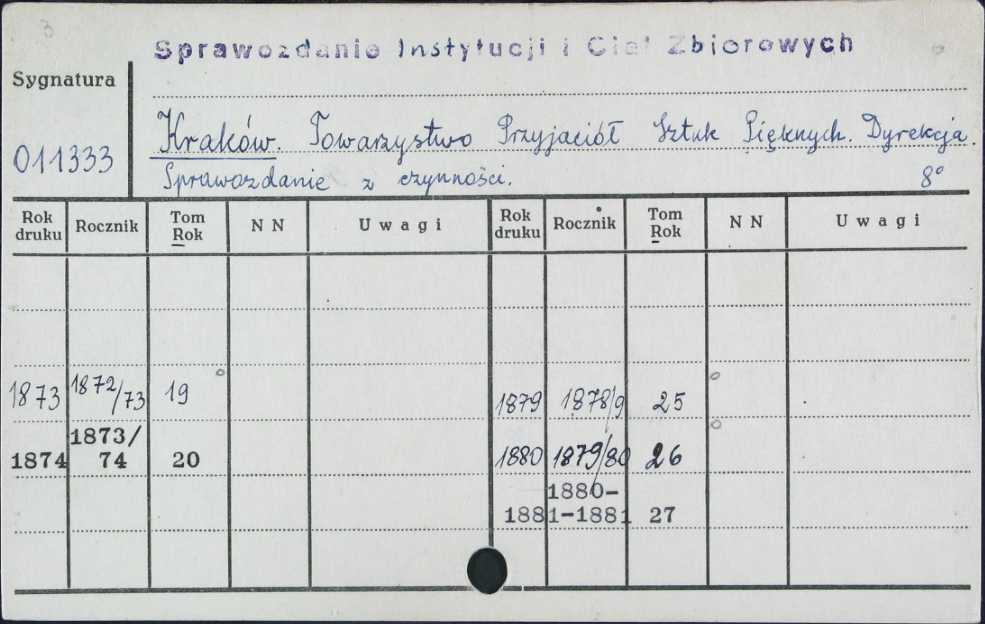 3
Sprawozdanie Instytucji i Ciał Zbiorowych
Sygnatura
011333
Kraków. Towarzystwo Przyjaciół Sztuk Pięknych. Dyrekcja.
Sprawozdanie z czynności. 8°
Rok druku Rocznik Tom Rok NN Uwagi Rok druku Rocznik Tom Rok NN Uwagi
1873 1872/73 19
1874 1873/74 20
1879 1878/9 25
1880 1879/80 26
1881 1880-1881 27